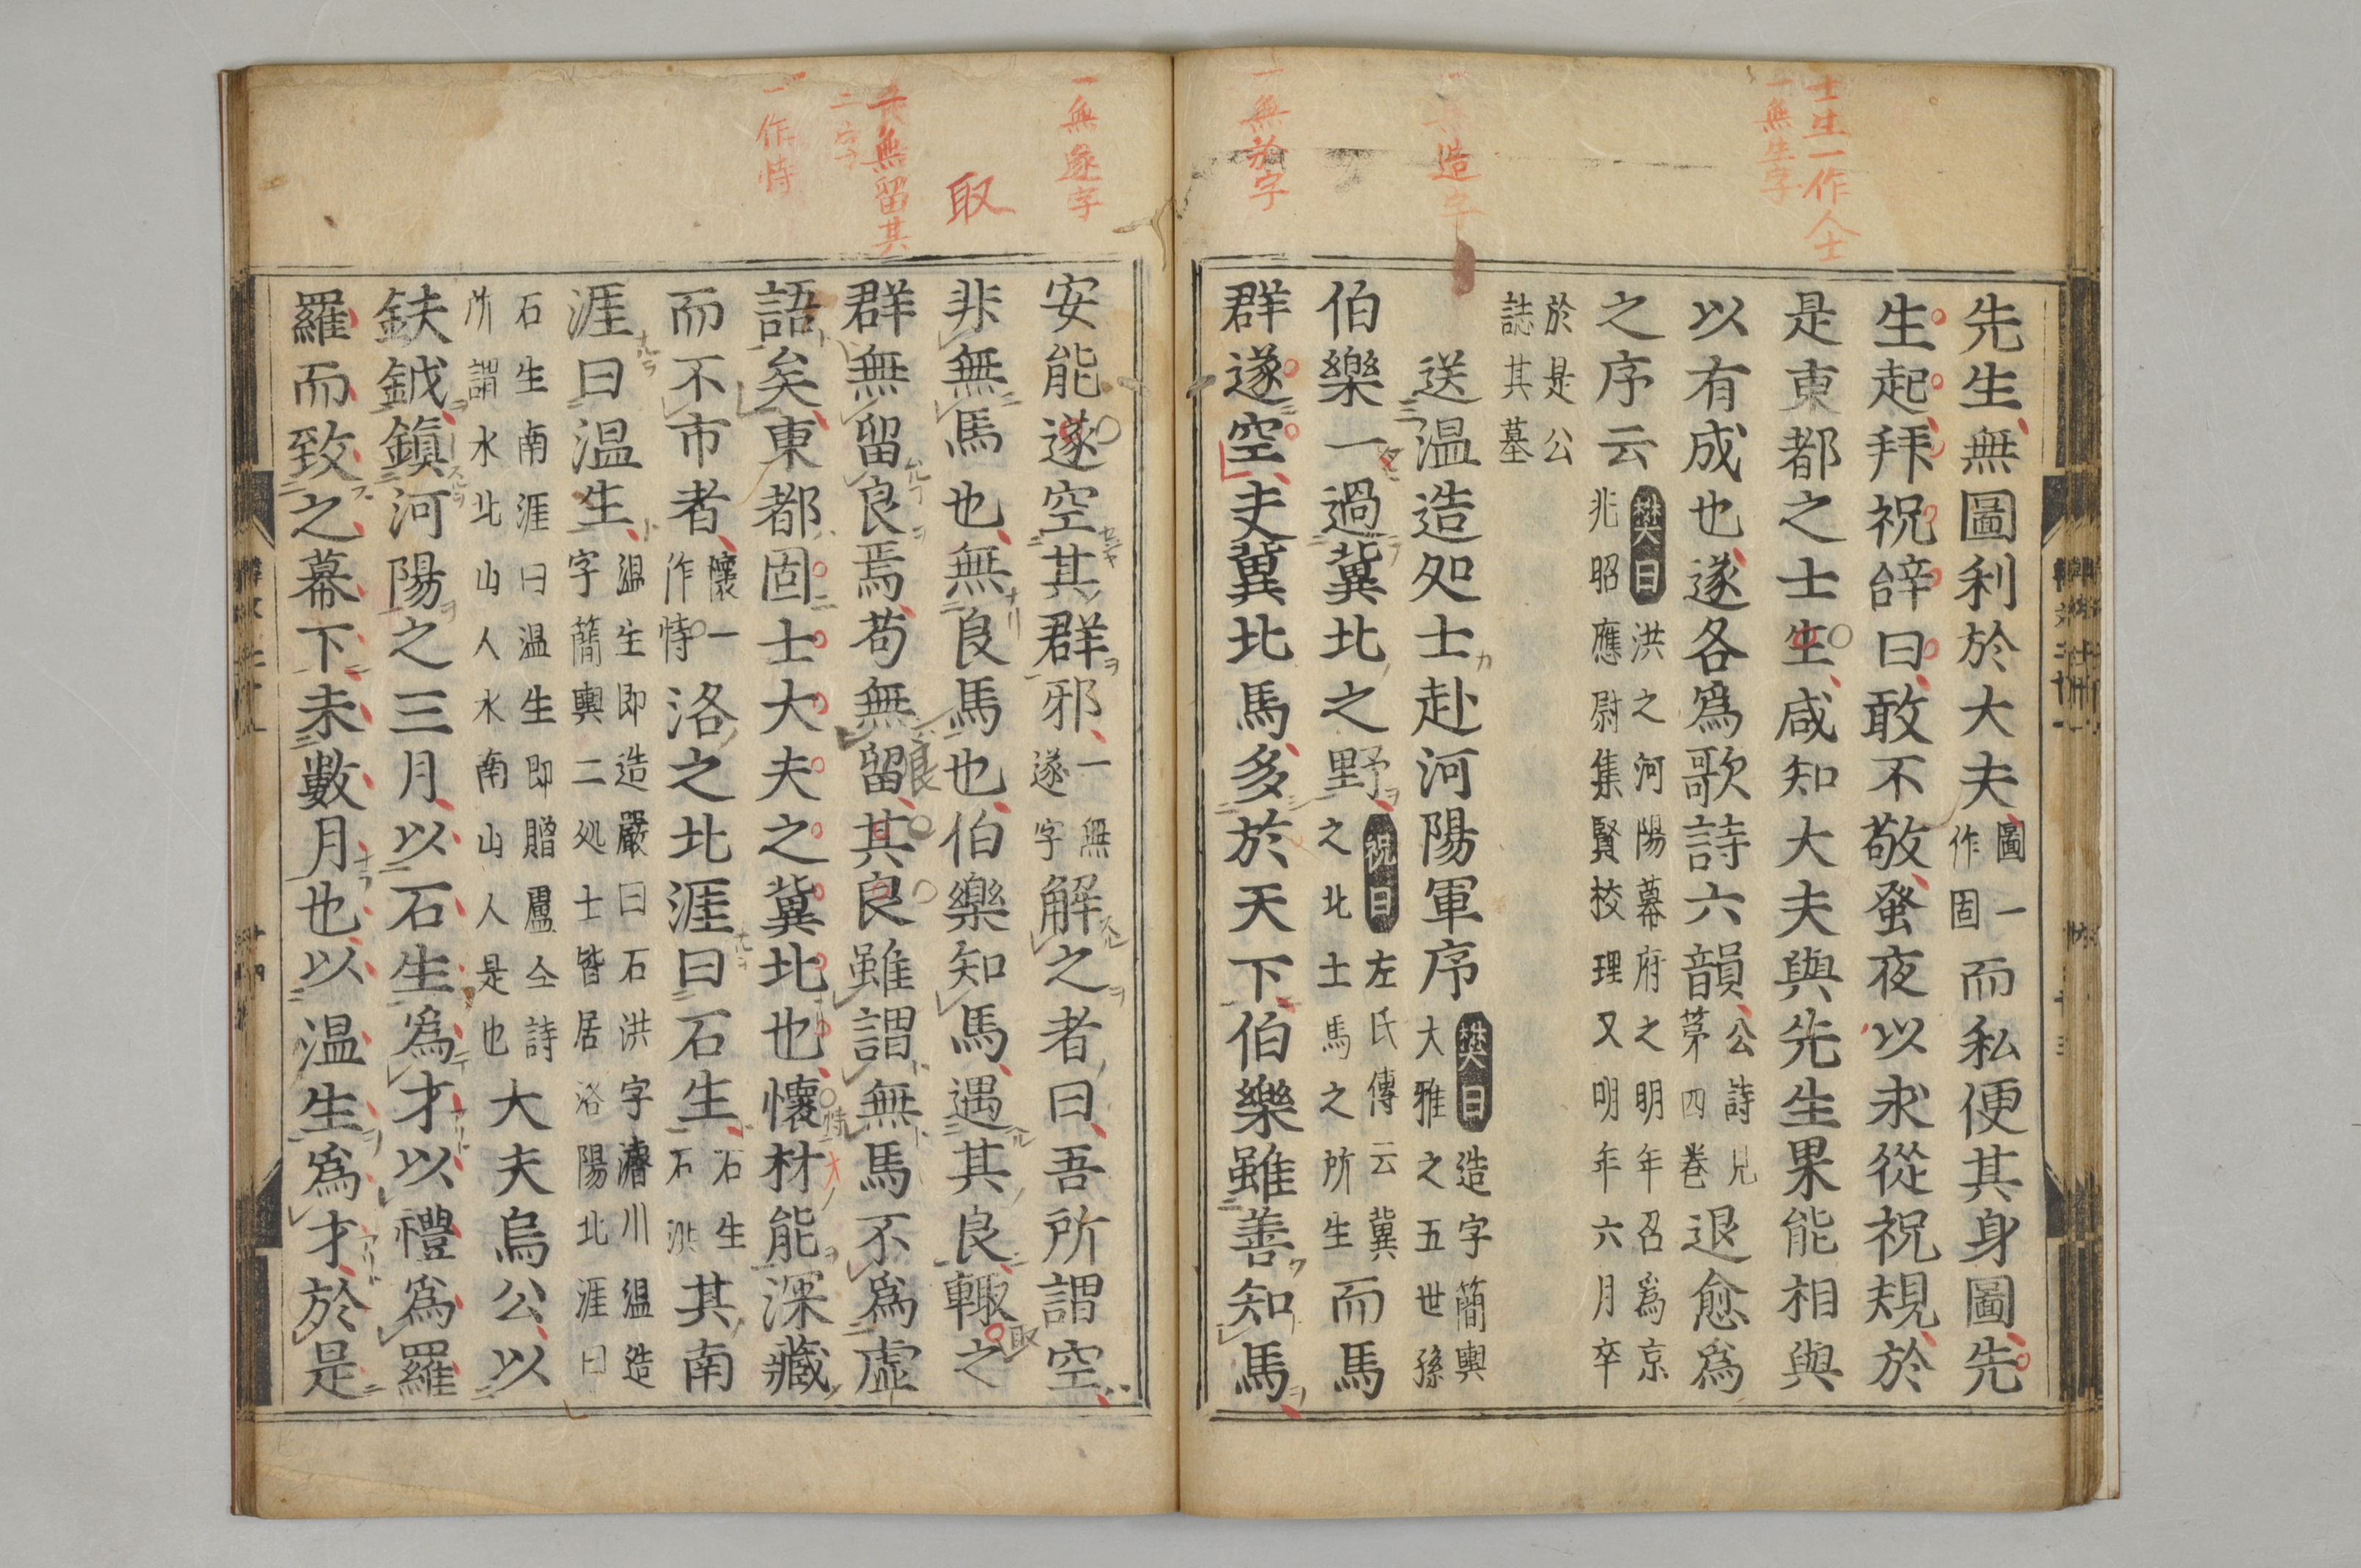 士生一作人士
一無生字
造字
一無於字
先生無圖利於大夫圖一作固而私便其身圖先
生起拜祝辝曰敢不敬蚤夜以求從祝規於
是東都之士生咸知大夫與先生果能相與
以有成也遂各爲歌詩六韻公詩見苐四巻退愈爲
之序云樊曰洪之河陽幕府之明年召爲京兆昭應尉集賢校理又明年六月卒
於是公誌其墓
送温造処士赴河陽軍序樊曰造字簡輿大雅之五世孫
伯樂一過冀北之野祝曰左氏傳云冀之北士馬之所生而馬
群遂空夫冀北馬多於天下伯樂雖善知馬
一無遂字
取
良無留其
二字
一作恃
安能遂空其群邪一無遂字解之者曰吾所謂空
非無馬也無良馬也伯樂知馬遇其良輙之
取
群無留良焉苟無留其良雖謂無馬不爲虛
良
語矣東都固士大夫之冀北也懷材能深藏
恃 才
而不市者懷一作恃洛之北涯曰石生石生石洪其南
涯曰温生温生即造嚴曰石洪字濬川温造字簡輿二処士皆居洛陽北涯曰
石生南涯曰温生即贈盧仝詩所謂水北山人水南山人是也大夫烏公以
鈇鉞鎮河陽之三月以石生爲才以禮爲羅
羅而致之幕下未數月也以温生爲才於是